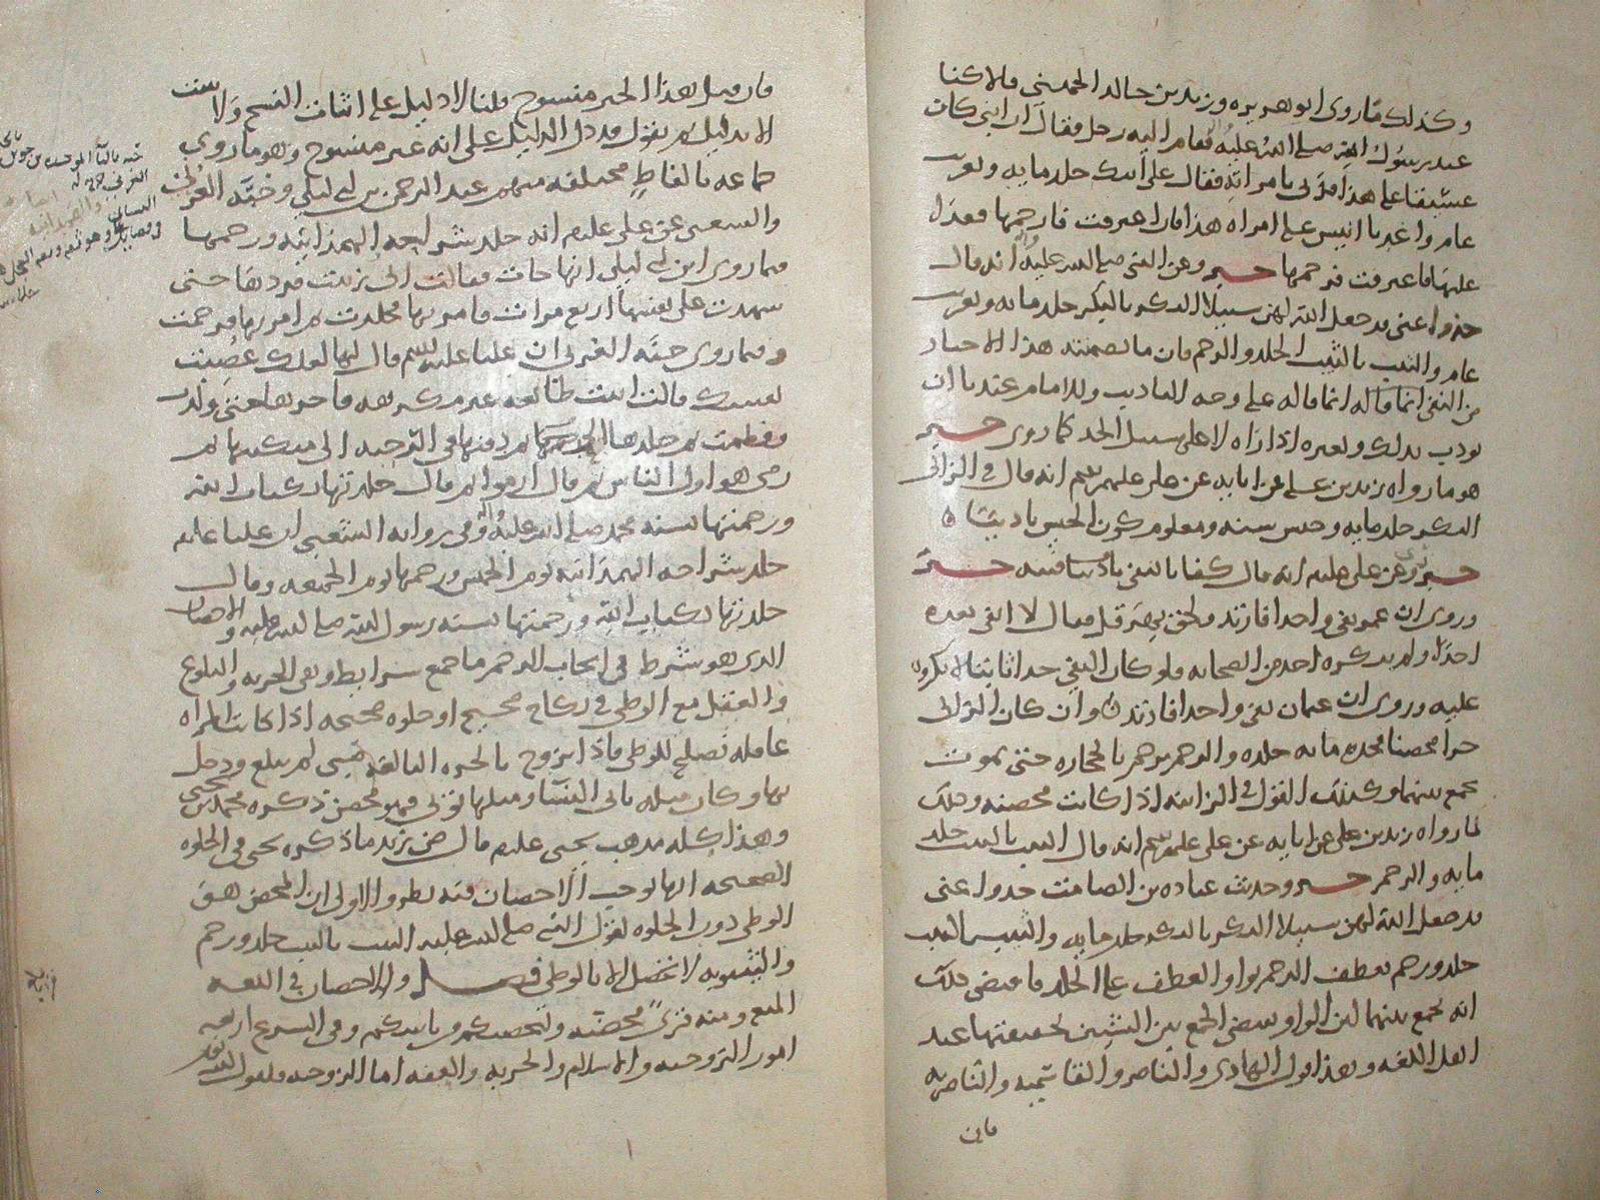 وكذلك ما روى ابو هريره وزيد بن خالد الجهني قالا كنا
عند رسول الله صلى الله عليه فقام اليه رجل فقال ان ابني كان
عسيفا على هذا فزنى بامراته فقال على ابنك جلد مايه وتغريب
عام واغد يا انيس على امراه هذا فان اعترفت فارجمها فغدا
عليها فاعترفت فرجمها خبر وعن النبي صلى الله عليه انه قال
خذوا عني قد جعل الله لهن سبيلا البكر بالبكر جلد مايه وتغريب
عام والثيب بالثيب الجلد والرجم فان ما تضمنته هذا الاخبار
من النفي انما قاله على وجه التاديب وللامام عندنا ان
يودب بذلك وبغيره اذا راه لا على سبيل الحد كما روى خبر
هو ما رواه زيد بن علي عن ابايه عن علي عليهم السلم انه قال في الزاني
البكر جلد مايه وحبس سنه ومعلوم كون الحبس تاديبا
خبر وعن علي عليلم انه قال كفا بالنفي فتنه خبر
وروى ان عمر نفى واحدا فارتد ولحق بهرقل فقال لا انفي بعده
احدا ولم ينكره احد من الصحابه فلو كان النفي حدا ثابتا لانكروه
عليه وروى ان عثمان نفى واحدا فارتد وان كان الزاني
حرا محصنا فحده مايه جلده والرجم يرجم بالحجاره حتى يموت
يجمع بينهما وكذلك القول في الزانيه اذا كانت محصنه وذلك
لما رواه زيد بن علي عن ابايه عن علي عليهم السلم انه قال الثيب بالثيب جلد
مايه والرجم خبر وحديث عباده بن الصامت خذوا عني
قد جعل الله لهن سبيلا البكر بالبكر جلد مايه والثيب بالثيب
جلد ورجم فعطف الرجم بواو العطف على الجلد فاقتضى ذلك
انه يجمع بينهما لان الواو يقتضي الجمع بين الشيئين لحقيقتها عند
اهل اللغه وهذا قول الهادي والناصر والقاسميه والناصريه
فان
فان قيل هذا الخبر منسوخ قلنا لا دليل على اثبات النسخ ولا يثبت
الا بدليل ثم نقول قد دل الدليل على انه غير منسوخ وهو ما روي
جماعه بالفاظ مختلفه منهم عبد الرحمن بن ابي ليلى وحبه العرني
والشعبي عن علي عليلم انه جلد شراحه الهمذانيه ورجمها
فما روى ابن ابي ليلى انها جات فقالت اني زنيت فردها حتى
شهدت على نفسها اربع مرات فامر بها فجلدت ثم امر بها فرجمت
وفيما روى حبه العرني ان عليا عليه السلم قال لها لعلك غصبت
نفسك قالت اتيت طائعه غير مكرهه فاخرها حتى ولدت
وفطمت ثم جلدها ثم دفنها في الرحبه الى منكبيها ثم
رمى هو اول الناس ثم قال ارموا ثم قال جلدتها بكتاب الله
ورجمتها بسنه محمد صلى الله عليه واله وفي روايه الشعبي ان عليا عليلم
جلد شراحه الهمذانيه يوم الخميس ورجمها يوم الجمعه وقال
جلدتها بكتاب الله ورجمتها بسنه رسول الله صلى الله عليه والاحصان
الذي هو شرط في ايجاب الرجم ما جمع شرايط وهي الحريه والبلوغ
والعقل مع الوطي في نكاح صحيح او خلوه صحيحه اذا كانت المراه
عاقله تصلح للوطي فاذا تزوج بالحره البالغه صبي لم يبلغ ودخل
بها وكان مثله ياتي النسا ومثلها توتى فهو محصن ذكره محمد بن يحيى
وهذا كله مذهب يحيى عليلم قال ض زيد ما ذكره يحيى في الخلوه
الصحيحه انها توجب الاحصان فيه نظر والاولى ان المحصن هو
الوطي دون الخلوه لقول النبي صلى الله عليه الثيب بالثيب جلد ورجم
والثيوبه لا تحصل الا بالوطي فصل والاحصان في اللغه
المنع ومنه قرى محصنه ولتحصنكم من باسكم وفي الشرع اربعه
امور التزوجيه والاسلام والحريه والعفه اما الزوجيه فلقول الله تعالى